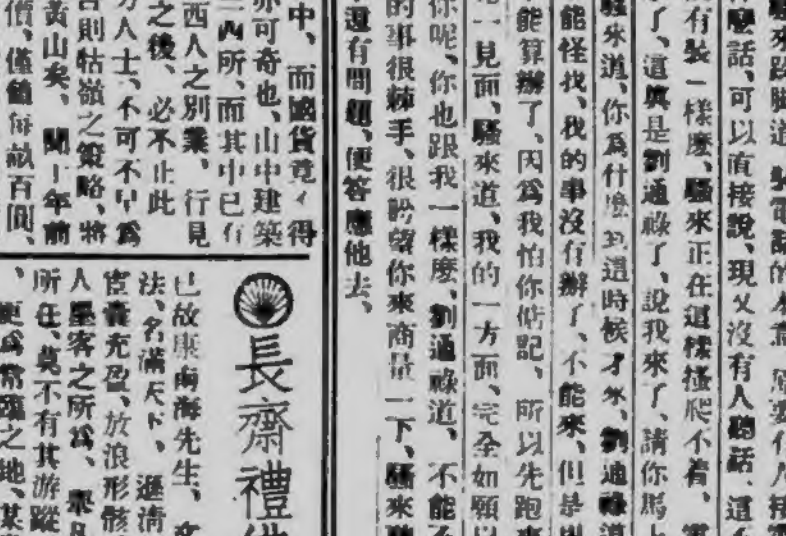 麼話、可以直接說、現又沒有人聽話、這
有裝一樣麼、騷來正在這樣搔爬不着、
了、這眞是劉通祿了、說我來了、請你馬上
騷來道、你爲什麼到這時候才來、劉通祿道
能怪我、我的事沒有辦了、不能來、但是
能算辦了、因爲我怕你惦記、所以先跑來
一見面、騷來道、我的一方面、完全如願以
你呢、你也跟我一樣麼、劉通祿道、不能
的事很棘手、很盼望你來商量一下、騷來
還有問題、便答應他去、
中、而國貨竟不得
亦可奇也、山中建築
西所、而其中已有
西人之別業、行見
之後、必不止此
人士、不可不早爲
則牯嶺之策略、將
黃山矣、聞十年前
價、僅值每畝百圓、
長齋禮
已故康南海先生、
法、名滿天下、遜清
宦囊充盈、放浪形骸
人墨客之所爲、
所在、莫不有其游蹤
、更爲常臨之地、某